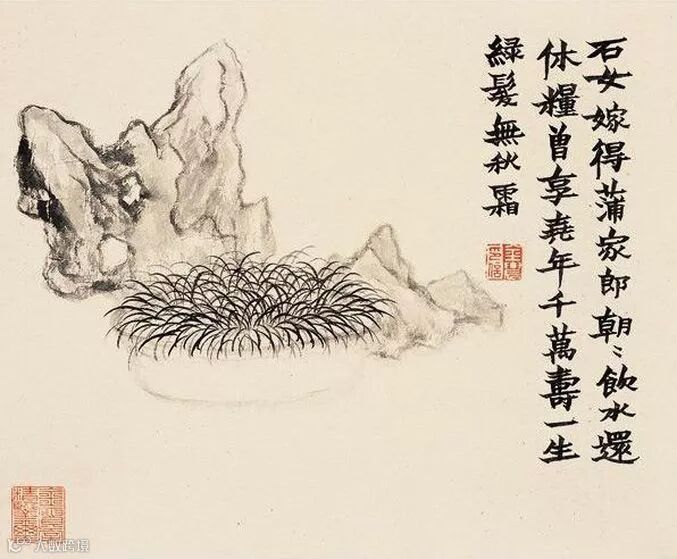 石女嫁得蒲家郎朝〻飲水還
休糧曾享堯年千萬壽一生
綠髮無秋霜
大数跨境